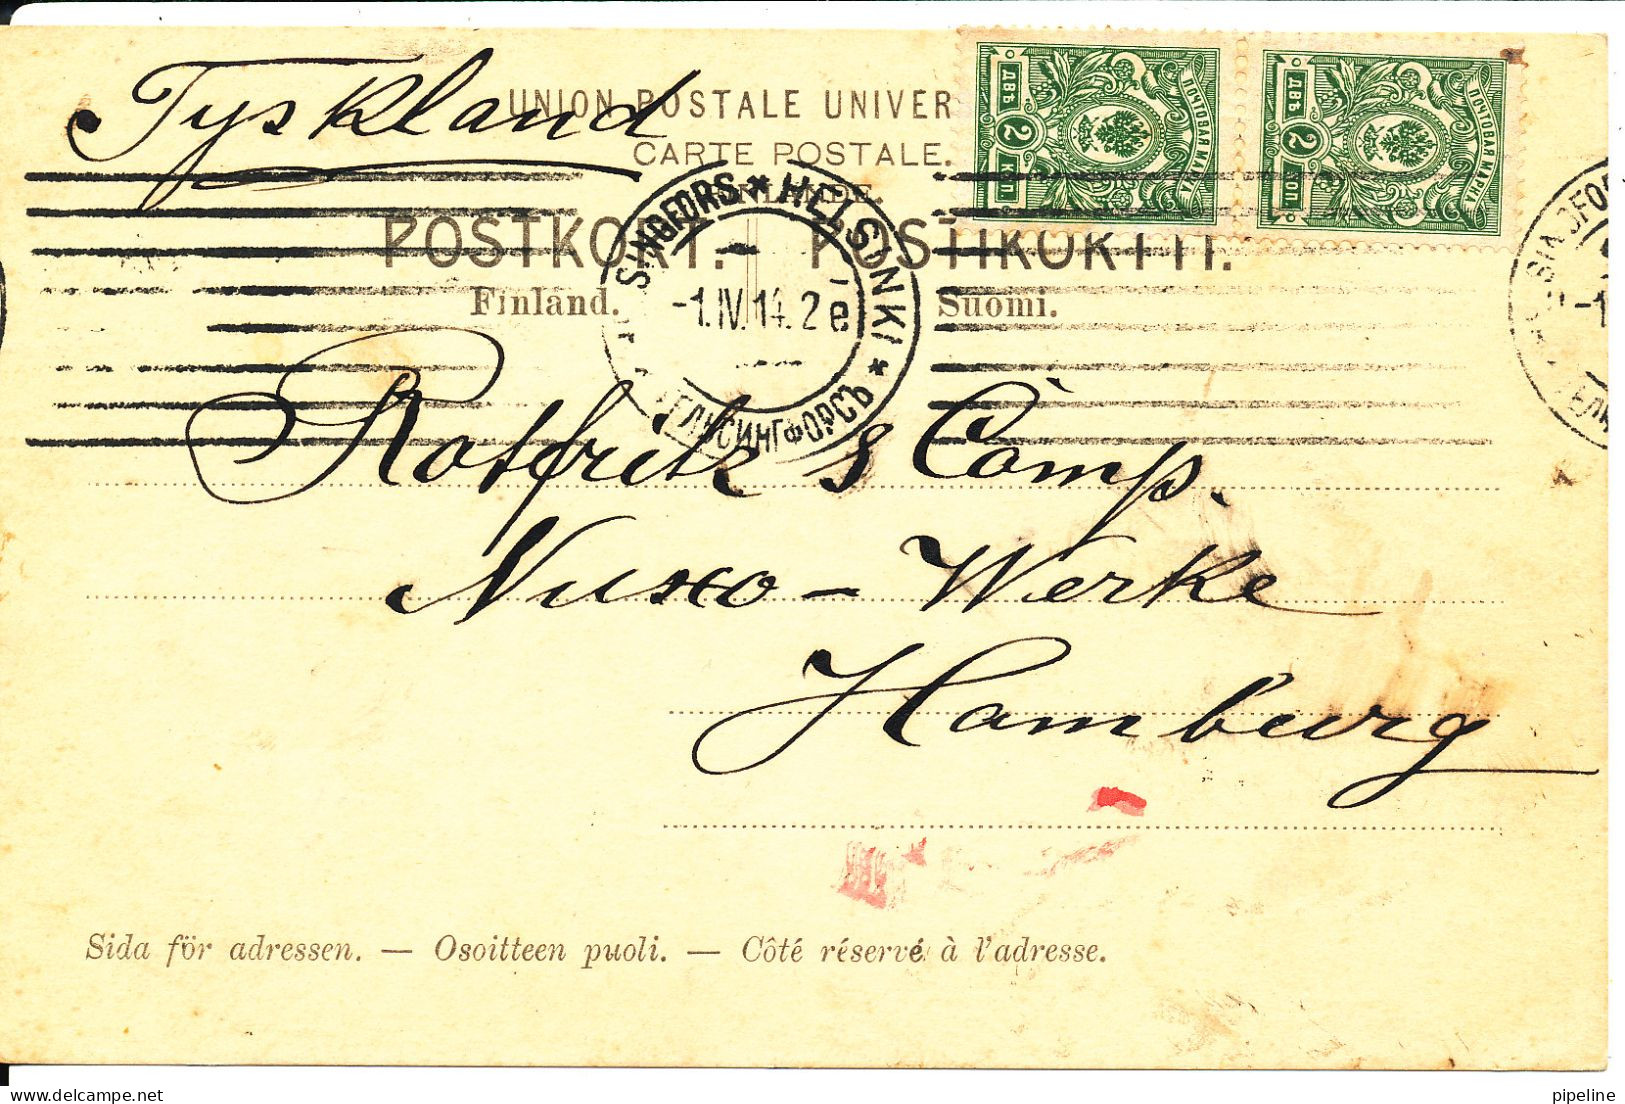 Tyskland
UNION POSTALE UNIVER
CARTE POSTALE.
POSTKORT. – POSTIKORTTI.
Finland. Suomi.
ПОЧТОВАЯ МАРКА
ДВѢ 2 КОП
ПОЧТОВАЯ МАРКА
ДВѢ 2 КОП
SINGFORS * HELSINKI *
ЕЛЬСИНГФОРСЪ
-1.IV.14. 2 e
Rotfritz & Comp.
Nuxo - Werke
Hamburg
Sida för adressen. — Osoitteen puoli. — Côté réservé à l'adresse.
pipeline